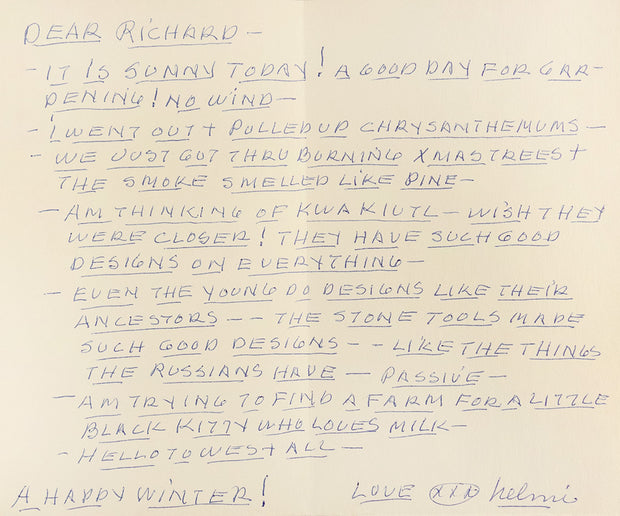 DEAR RICHARD —
- IT IS SUNNY TODAY! A GOOD DAY FOR GAR-
DENING! NO WIND —
- I WENT OUT + PULLED UP CHRYSANTHEMUMS —
- WE JUST GOT THRU BURNING XMAS TREES +
THE SMOKE SMELLED LIKE PINE —
- AM THINKING OF KWAKIUTL — WISH THEY
WERE CLOSER! THEY HAVE SUCH GOOD
DESIGNS ON EVERYTHING —
- EVEN THE YOUNG DO DESIGNS LIKE THEIR
ANCESTORS -- THE STONE TOOLS MADE
SUCH GOOD DESIGNS -- LIKE THE THINGS
THE RUSSIANS HAVE — PASSIVE —
- AM TRYING TO FIND A FARM FOR A LITTLE
BLACK KITTY WHO LOVES MILK —
- HELLO TO WES + ALL —
A HAPPY WINTER! LOVE XXX helmi